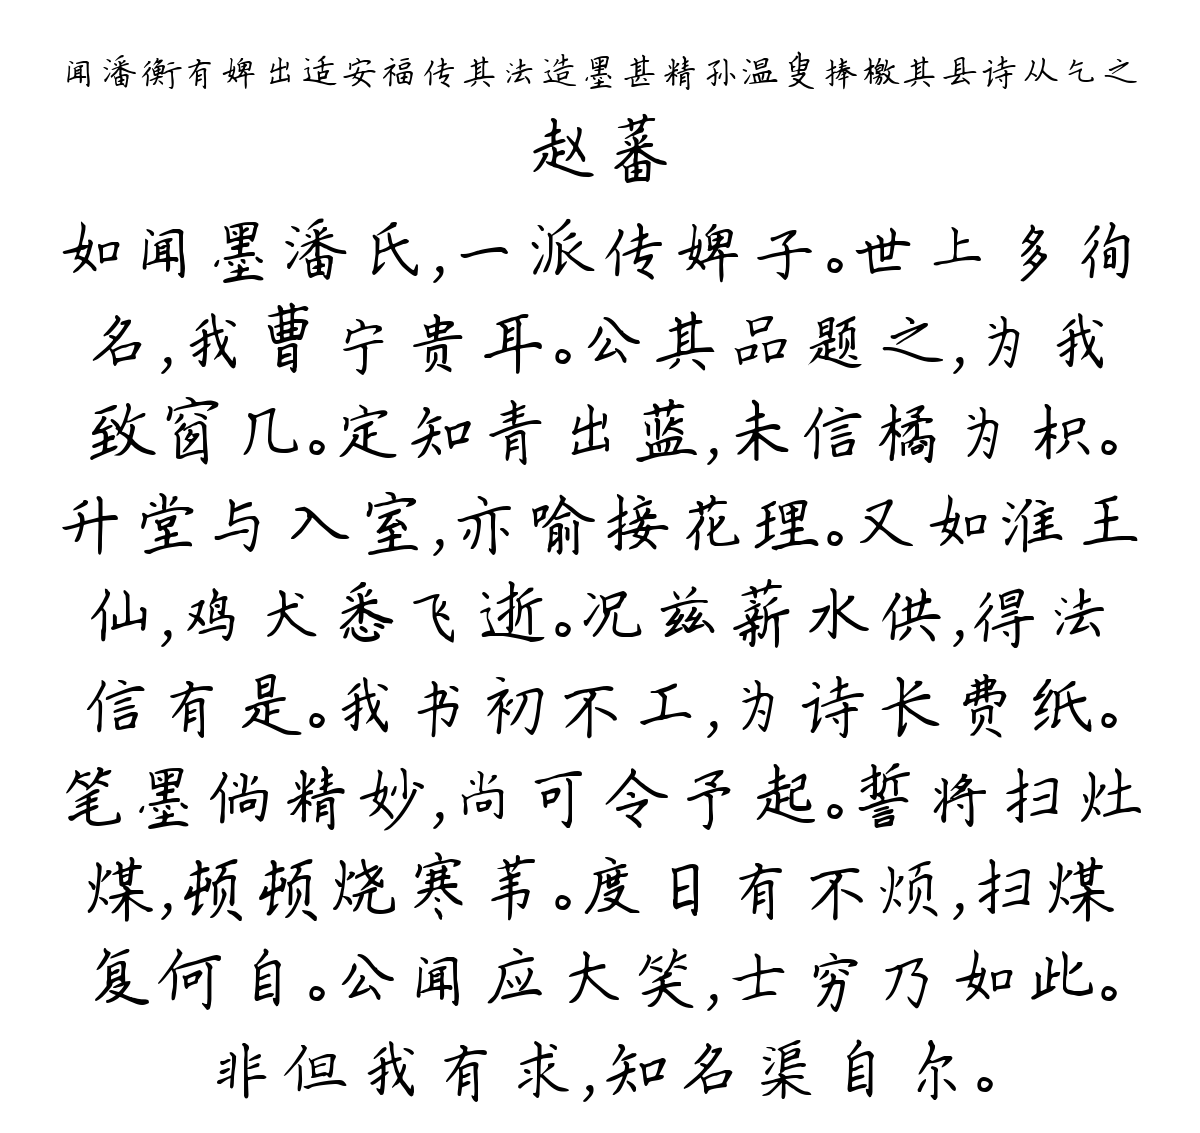 闻潘衡有婢出适安福传其法造墨甚精孙温叟捧檄其县诗从乞之
赵蕃
如闻墨潘氏,一派传婢子。世上多徇
名,我曹宁贵耳。公其品题之,为我
致窗几。定知青出蓝,未信橘为枳。
升堂与入室,亦喻接花理。又如淮王
仙,鸡犬悉飞逝。况兹薪水供,得法
信有是。我书初不工,为诗长费纸。
笔墨倘精妙,尚可令予起。誓将扫灶
煤,顿顿烧寒苇。度日有不烦,扫煤
复何自。公闻应大笑,士穷乃如此。
非但我有求,知名渠自尔。